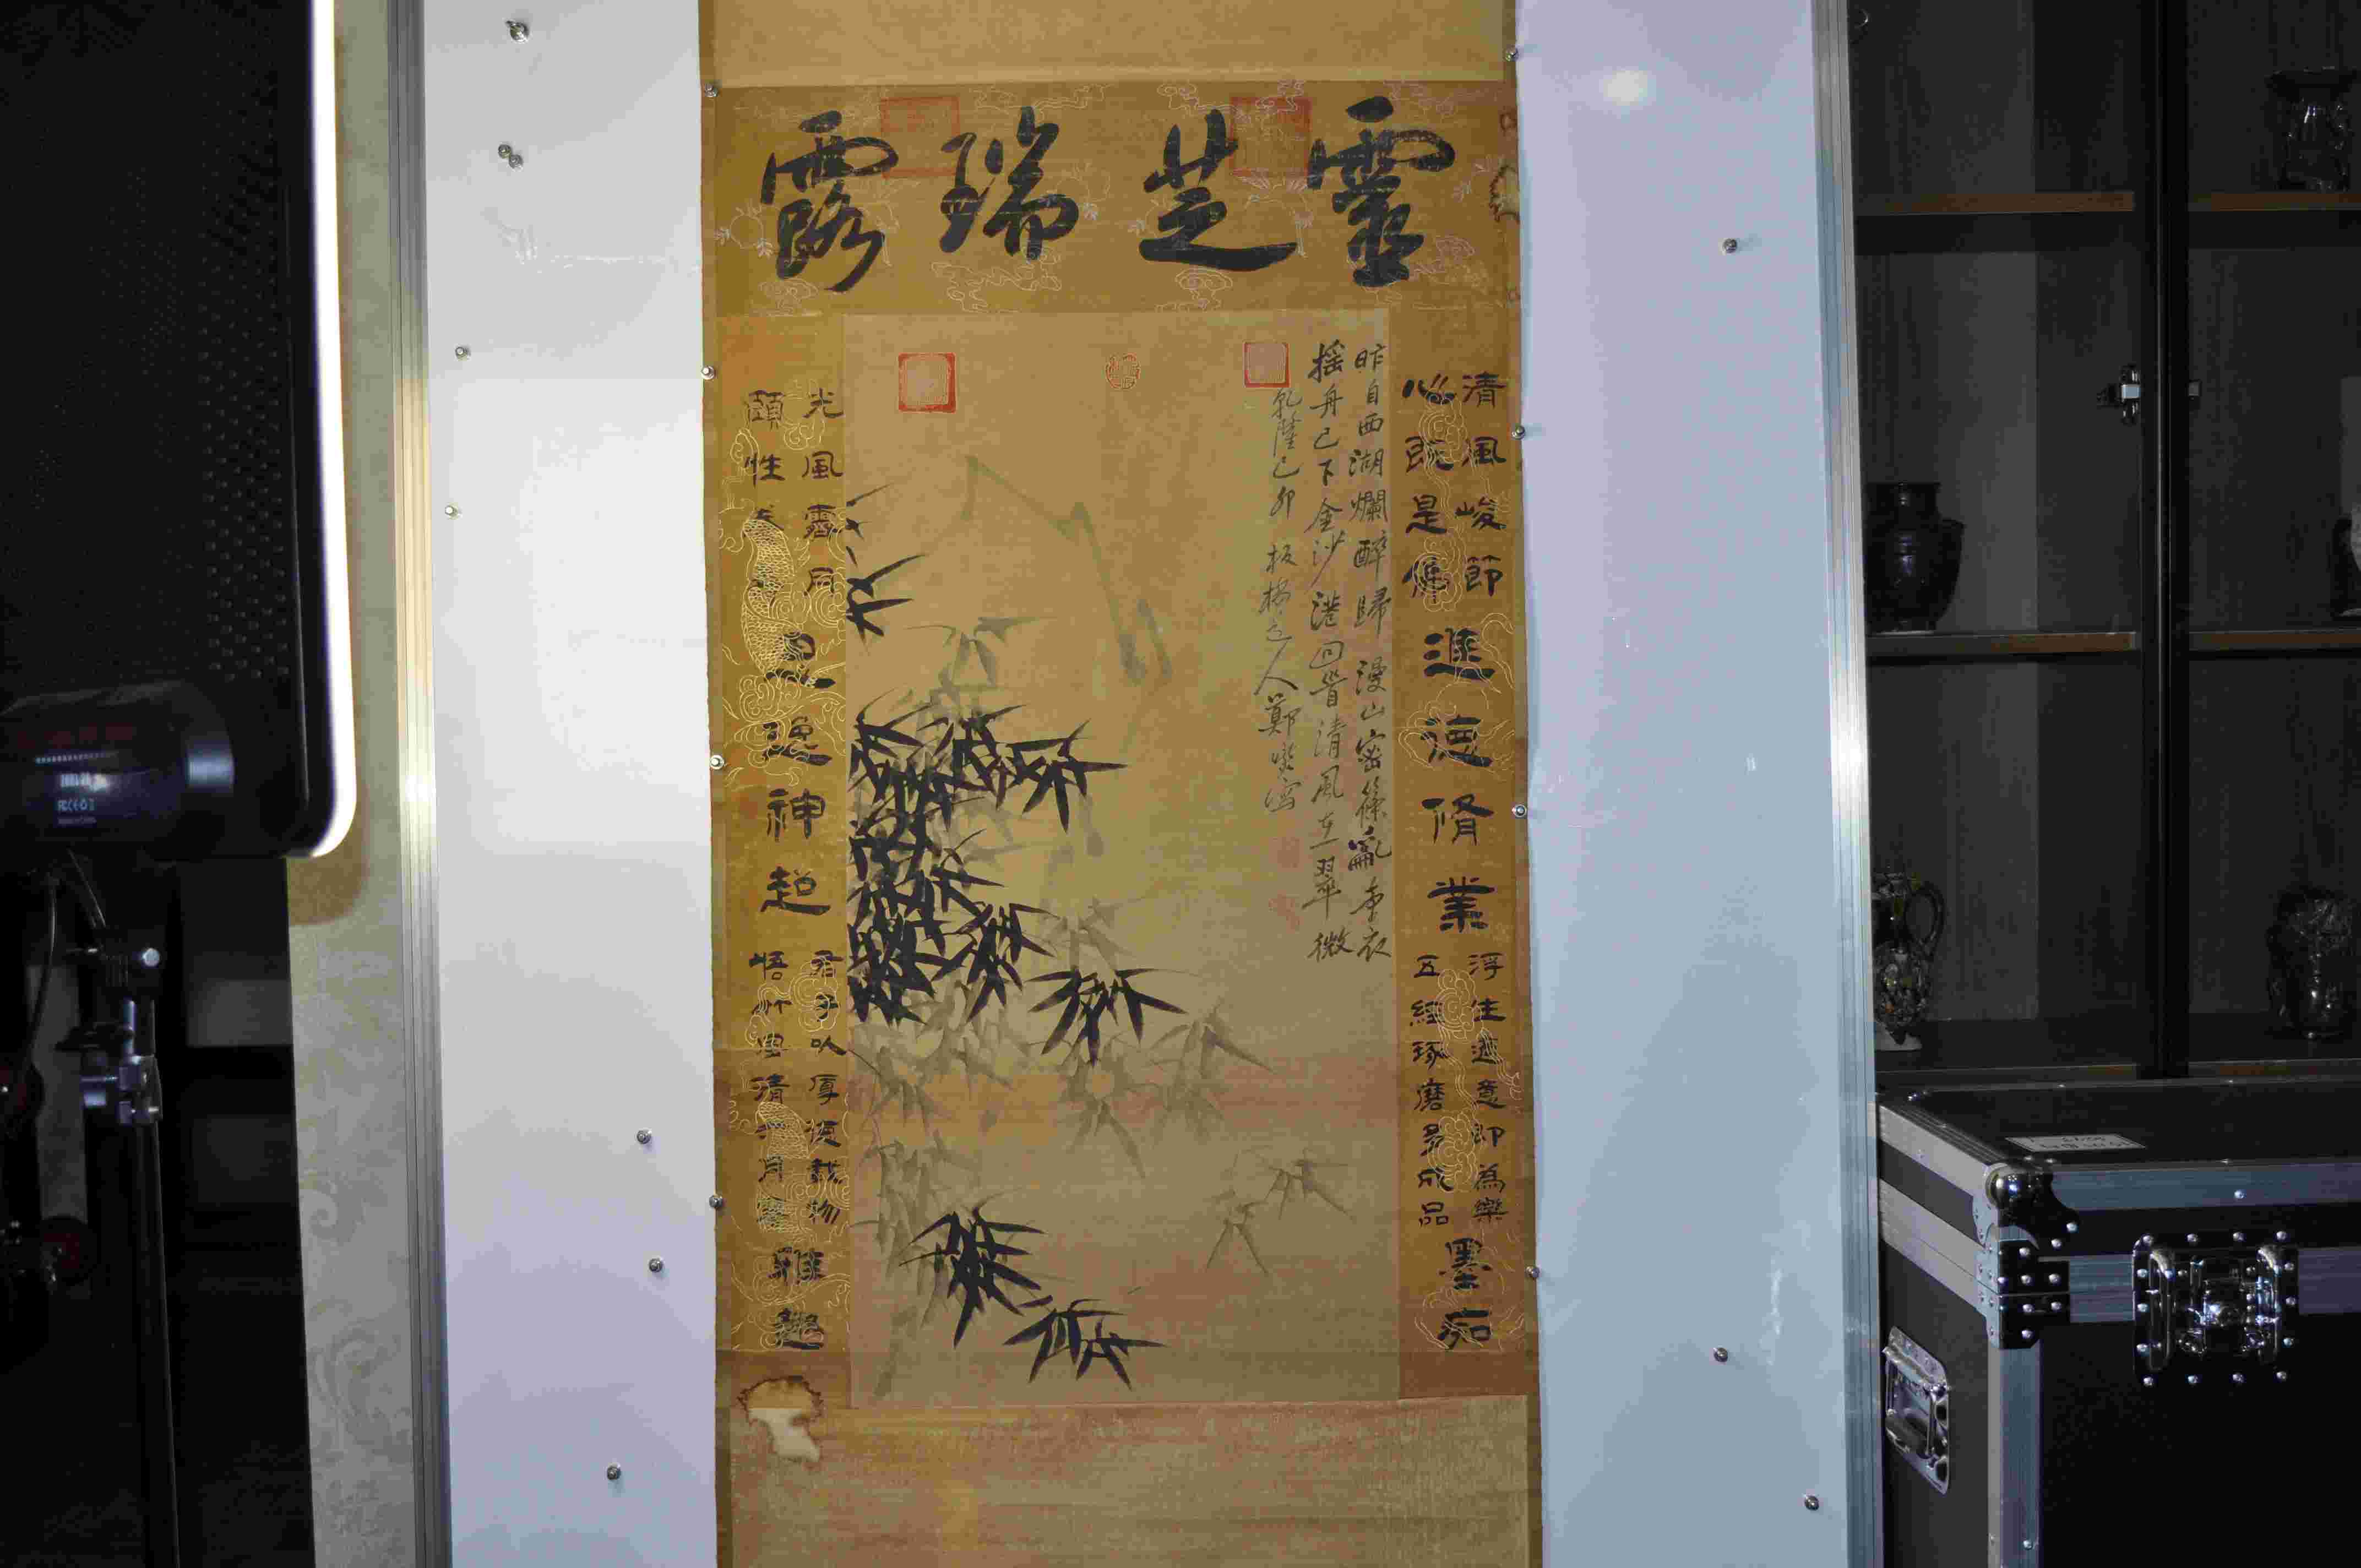 靈芝瑞露
昨自西湖爛醉歸漫山密篠亂牽衣
搖舟已下金沙港回首清風在翠微
乾隆己卯 板橋道人鄭燮寫
清風峻節
心既是佛
進德修業
浮生適意即為樂
五經琢磨多成品
墨痴
光風霽月
頤性養
思逸神超
君子以厚德載物
悟竹
清
月
雅趣